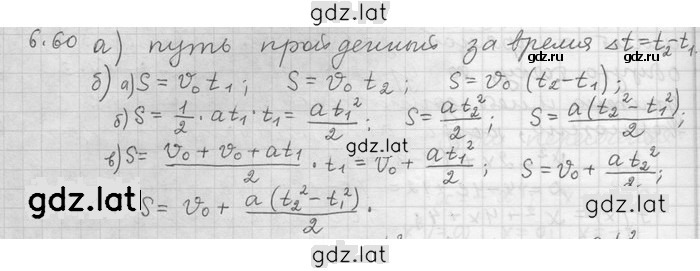 gdz.lat
6.60 а) путь пройденный за время Δt=t₂-t₁
gdz.lat
б) а) S = v₀t₁; S = v₀t₂; S = v₀(t₂-t₁);
б) S = 1/2 · at₁ · t₁ = at₁²/2; S = at₂²/2; S = a(t₂²-t₁²)/2;
gdz.lat
в) S = (v₀+v₀+at₁)/2 · t₁ = v₀ + at₁²/2; S = v₀ + at₂²/2;
gdz.lat
gdz.lat
S = v₀ + a(t₂²-t₁²)/2.
gdz.lat